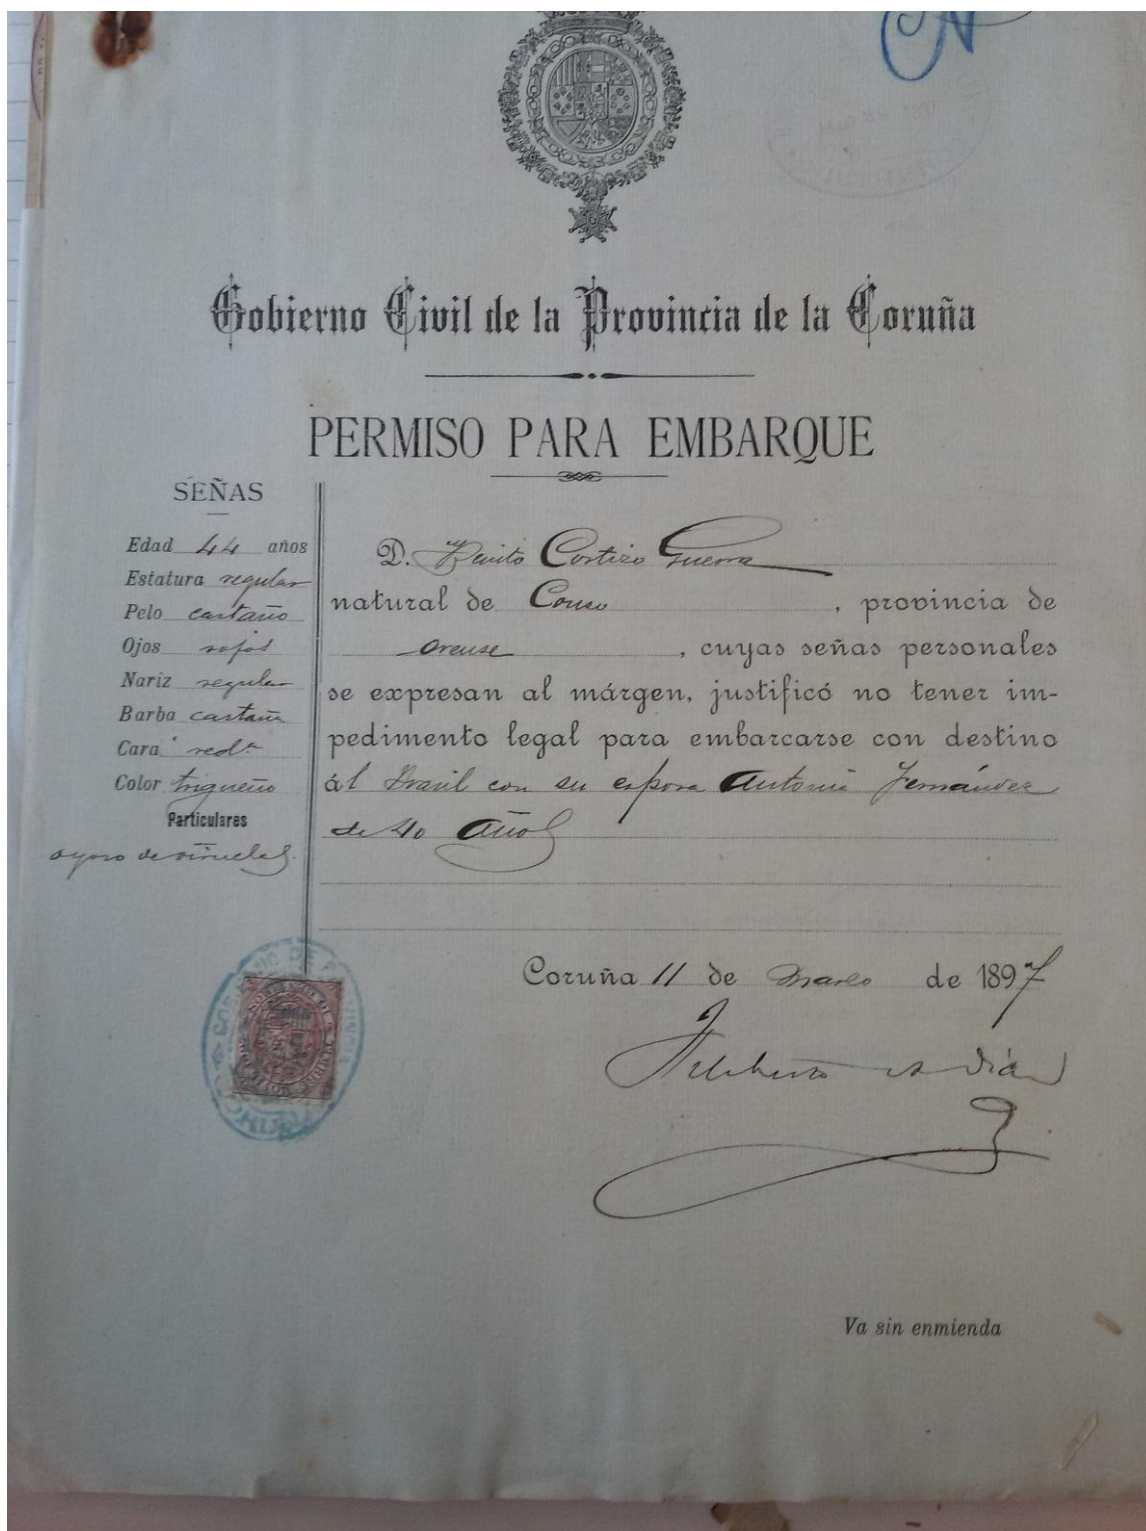 Gobierno Civil de la Provincia de la Coruña
PERMISO PARA EMBARQUE
SEÑAS
Edad 44 años
Estatura regular
Pelo castaño
Ojos rojos
Nariz regular
Barba castaña
Cara red.ª
Color trigueño
Particulares
oyoso de viruelas.
D. Benito Cortizo Guerra
natural de Conso, provincia de
orense, cuyas señas personales
se expresan al márgen, justificó no tener im-
pedimento legal para embarcarse con destino
ál Brasil con su esposa Antonia Fernández
de 40 Años
Coruña 11 de Marzo de 1897
Va sin enmienda